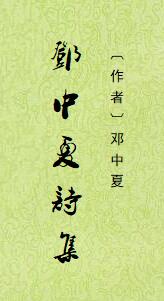 鄧中夏詩集
〔作者〕邓中夏